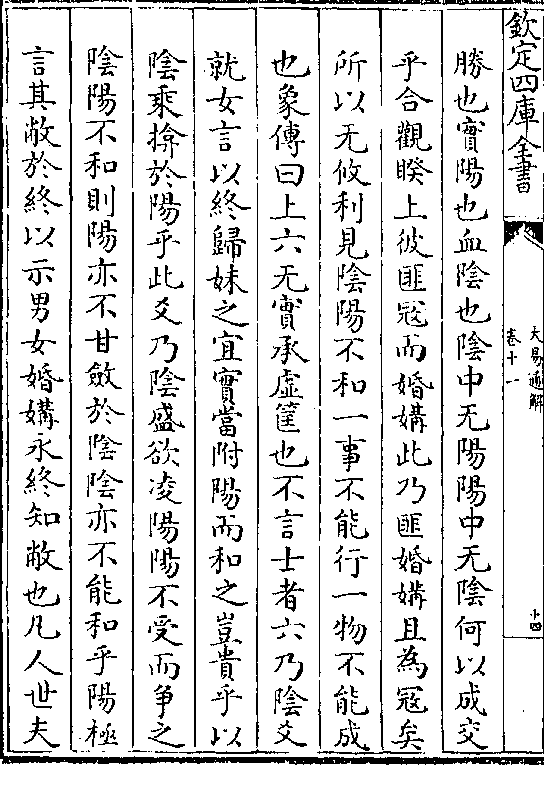 欽定四庫全書
大易通解
卷十一
十四
勝也實陽也血陰也陰中无陽陽中无陰何以成交
乎合觀睽上彼匪冦而婚媾此乃匪婚媾且為冦矣
所以无攸利見陰陽不和一事不能行一物不能成
也象傳曰上六无實承虛筐也不言士者六乃陰爻
就女言以終歸妹之宜實當附陽而和之豈貴乎以
陰乘揜於陽乎此爻乃陰盛欲凌陽陽不受而爭之
陰陽不和則陽亦不甘斂於陰陰亦不能和乎陽極
言其敝於終以示男女婚媾永終知敝也凡人世夫